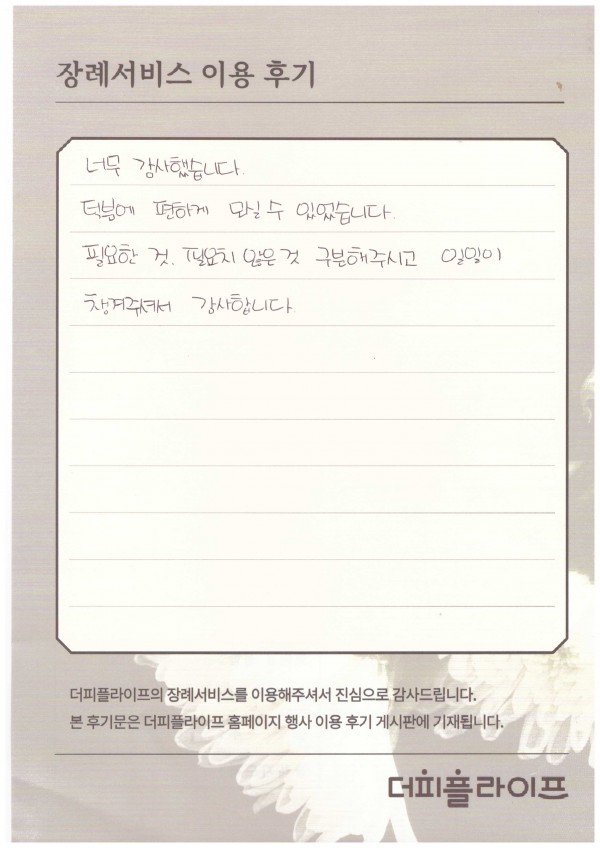 장례서비스 이용 후기
너무 감사했습니다.
덕분에 편하게 모실 수 있었습니다.
필요한 것. 필요치 않은 것 구분해주시고 일일이
챙겨주셔서 감사합니다.
더피플라이프의 장례서비스를 이용해주셔서 진심으로 감사드립니다.
본 후기문은 더피플라이프 홈페이지 행사 이용 후기 게시판에 기재됩니다.
더피플라이프